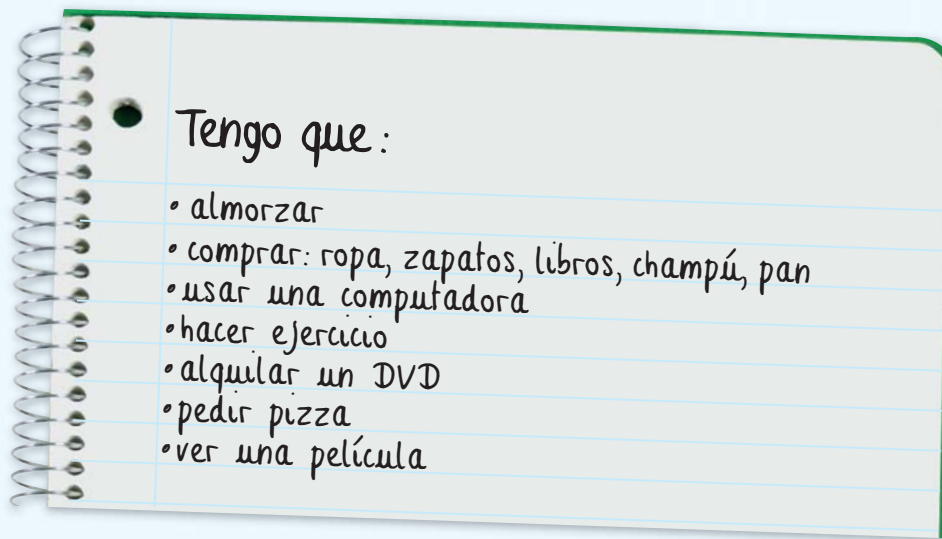 Tengo que:
• almorzar
• comprar: ropa, zapatos, libros, champú, pan
• usar una computadora
• hacer ejercicio
• alquilar un DVD
• pedir pizza
• ver una película